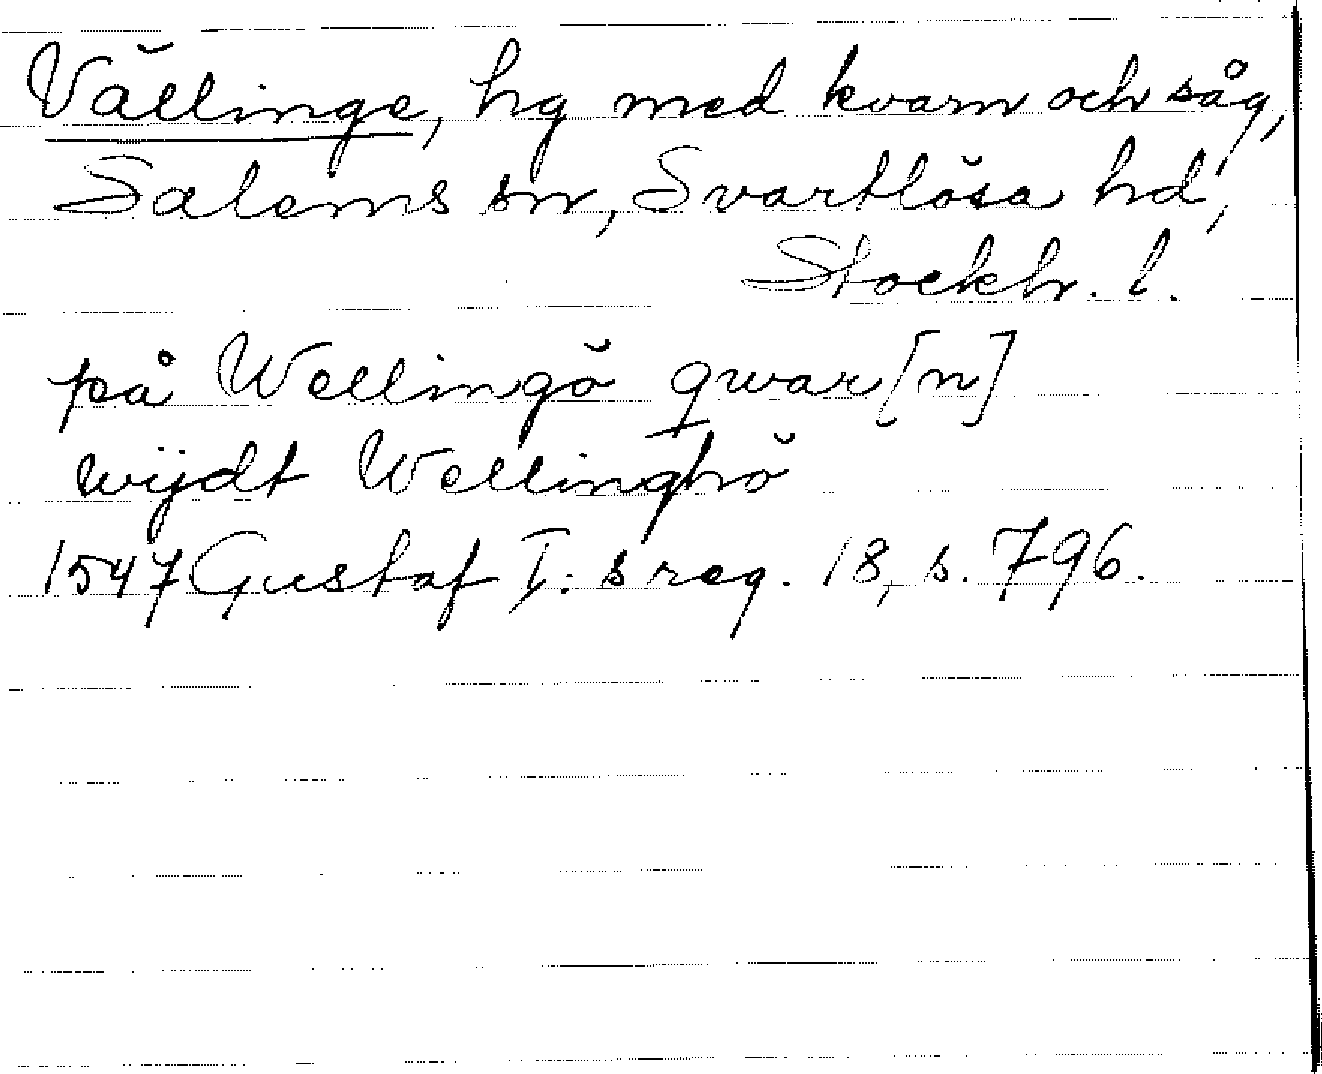 Vällinge, hg med kvarn och såg,
Salems sn, Svartlösa hd,
Stockh. l.
på Wellingö qwar[n]
wijdt Wellinghö
1547 Gustaf I:s reg. 18, s. 796.